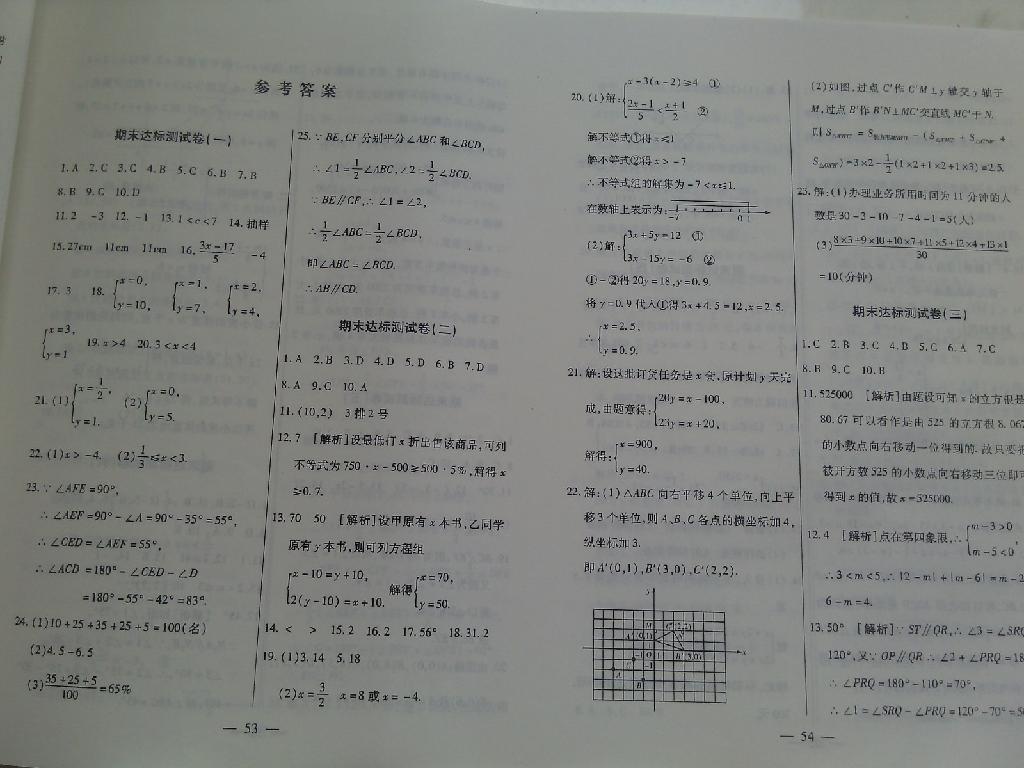 参考答案
期末达标测试卷(一)
1. A 2. C 3. C 4. B 5. C 6. B 7. B
8. B 9. C 10. D
11. 2 -3 12. -1 13. 1<c<7 14. 抽样
15. 27cm 11cm 11cm 16. (3x-17)/5 -4
17. 3 18. {x=0, y=10, {x=1, y=7, {x=2, y=4,
{x=3, y=1 19. x>4 20. 3<x<4
21. (1){x=1/2, y=1. (2){x=0, y=5.
22. (1)x>-4. (2)1/3≤x<3.
23. ∵∠AFE=90°,
∴∠AEF=90°-∠A=90°-35°=55°,
∴∠CED=∠AEF=55°,
∴∠ACD=180°-∠CED-∠D
=180°-55°-42°=83°.
24. (1)10+25+35+25+5=100(名)
(2)4.5-6.5
(3)(35+25+5)/100=65%
25. ∵BE,CF分别平分∠ABC和∠BCD,
∴∠1=1/2∠ABC,∠2=1/2∠BCD.
∵BE∥CF,∴∠1=∠2,
∴1/2∠ABC=1/2∠BCD,
即∠ABC=∠BCD.
∴AB∥CD.
期末达标测试卷(二)
1. A 2. B 3. D 4. D 5. D 6. B 7. D
8. A 9. C 10. A
11. (10,2) 3排2号
12. 7 [解析]设最低打x折出售该商品,可列
不等式为750·x-500≥500·5%,解得x
≥0.7.
13. 70 50 [解析]设甲原有x本书,乙同学
原有y本书,则可列方程组
{x-10=y+10, 2(y-10)=x+10. 解得{x=70, y=50.
14. < > 15. 2 16. 2 17. 56° 18. 31.2
19. (1)3.14 5.18
(2)x=3/2 x=8或x=-4.
— 53 —
20. (1)解:{x-3(x-2)≥4 ① (2x-1)/5<(x+1)/2 ②
解不等式①得x≤1
解不等式②得x>-7
∴不等式组的解集为-7<x≤1.
在数轴上表示为: -7 0 1
(2)解:{3x+5y=12 ① 3x-15y=-6 ②
①-②得20y=18,y=0.9.
将y=0.9代入①得3x+4.5=12,x=2.5.
∴{x=2.5, y=0.9.
21. 解:设这批订货任务是x套,原计划y天完
成,由题意得:{20y=x-100, 23y=x+20,
解得:{x=900, y=40.
22. 解:(1)△ABC向右平移4个单位,向上平
移3个单位,则A、B、C各点的横坐标加4,
纵坐标加3.
即A'(0,1),B'(3,0),C'(2,2).
y
M C'(2,2)
A'(0,1)
B'(3,0) x
— 54 —
(2)如图,过点C'作C'M⊥y轴交y轴于
M,过点B'作B'N⊥MC'交直线MC'于N.
=3×2-1/2(1×2+1×2+1×3)=2.5.
23. 解:(1)办理业务所用时间为11分钟的人
数是30-3-10-7-4-1=5(人)
(3)(8×3+9×10+10×7+11×5+12×4+13×1)/30
=10(分钟)
期末达标测试卷(三)
1. C 2. B 3. C 4. B 5. C 6. A 7. C
8. B 9. C 10. B
11. 525000 [解析]由题设可知x的立方根是
80.67可以看作是由525的立方根8.067
的小数点向右移动一位得到的.故只要把
被开方数525的小数点向右移动三位即可
得到x的值,故x=525000.
12. 4 [解析]点在第四象限,∴{m-3>0, m-5<0,
∴3<m<5,∴|2-m|+|m-6|=m-2
6-m=4.
13. 50° [解析]∵ST∥QR,∴∠3=∠SRQ
120°,又∵OP∥QR∴∠2+∠PRQ=18
∴∠PRQ=180°-110°=70°,
∴∠1=∠SRQ-∠PRQ=120°-70°=5